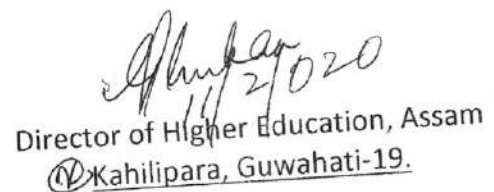 11/2/2020
Director of Higher Education, Assam
Kahilipara, Guwahati-19.